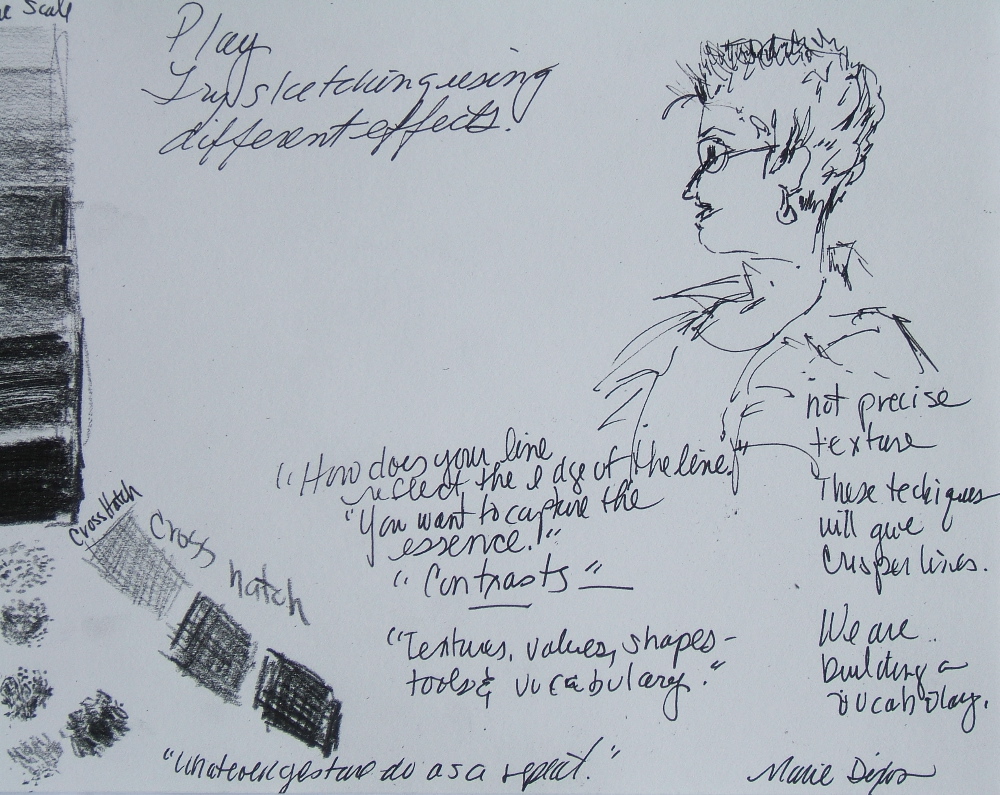 Scale
Play
Try sketching using
different effects.
"How does your line
reflect the edge of the line."
"You want to capture the
essence."
"Contrasts"
"Textures, values, shapes -
tools & vocabulary."
not precise
texture
These techiques
will give
Crisper lines.
We are
building a
vocabulary.
Cross Hatch
Cross hatch
"Whatever gesture do as a repeat."
Marie